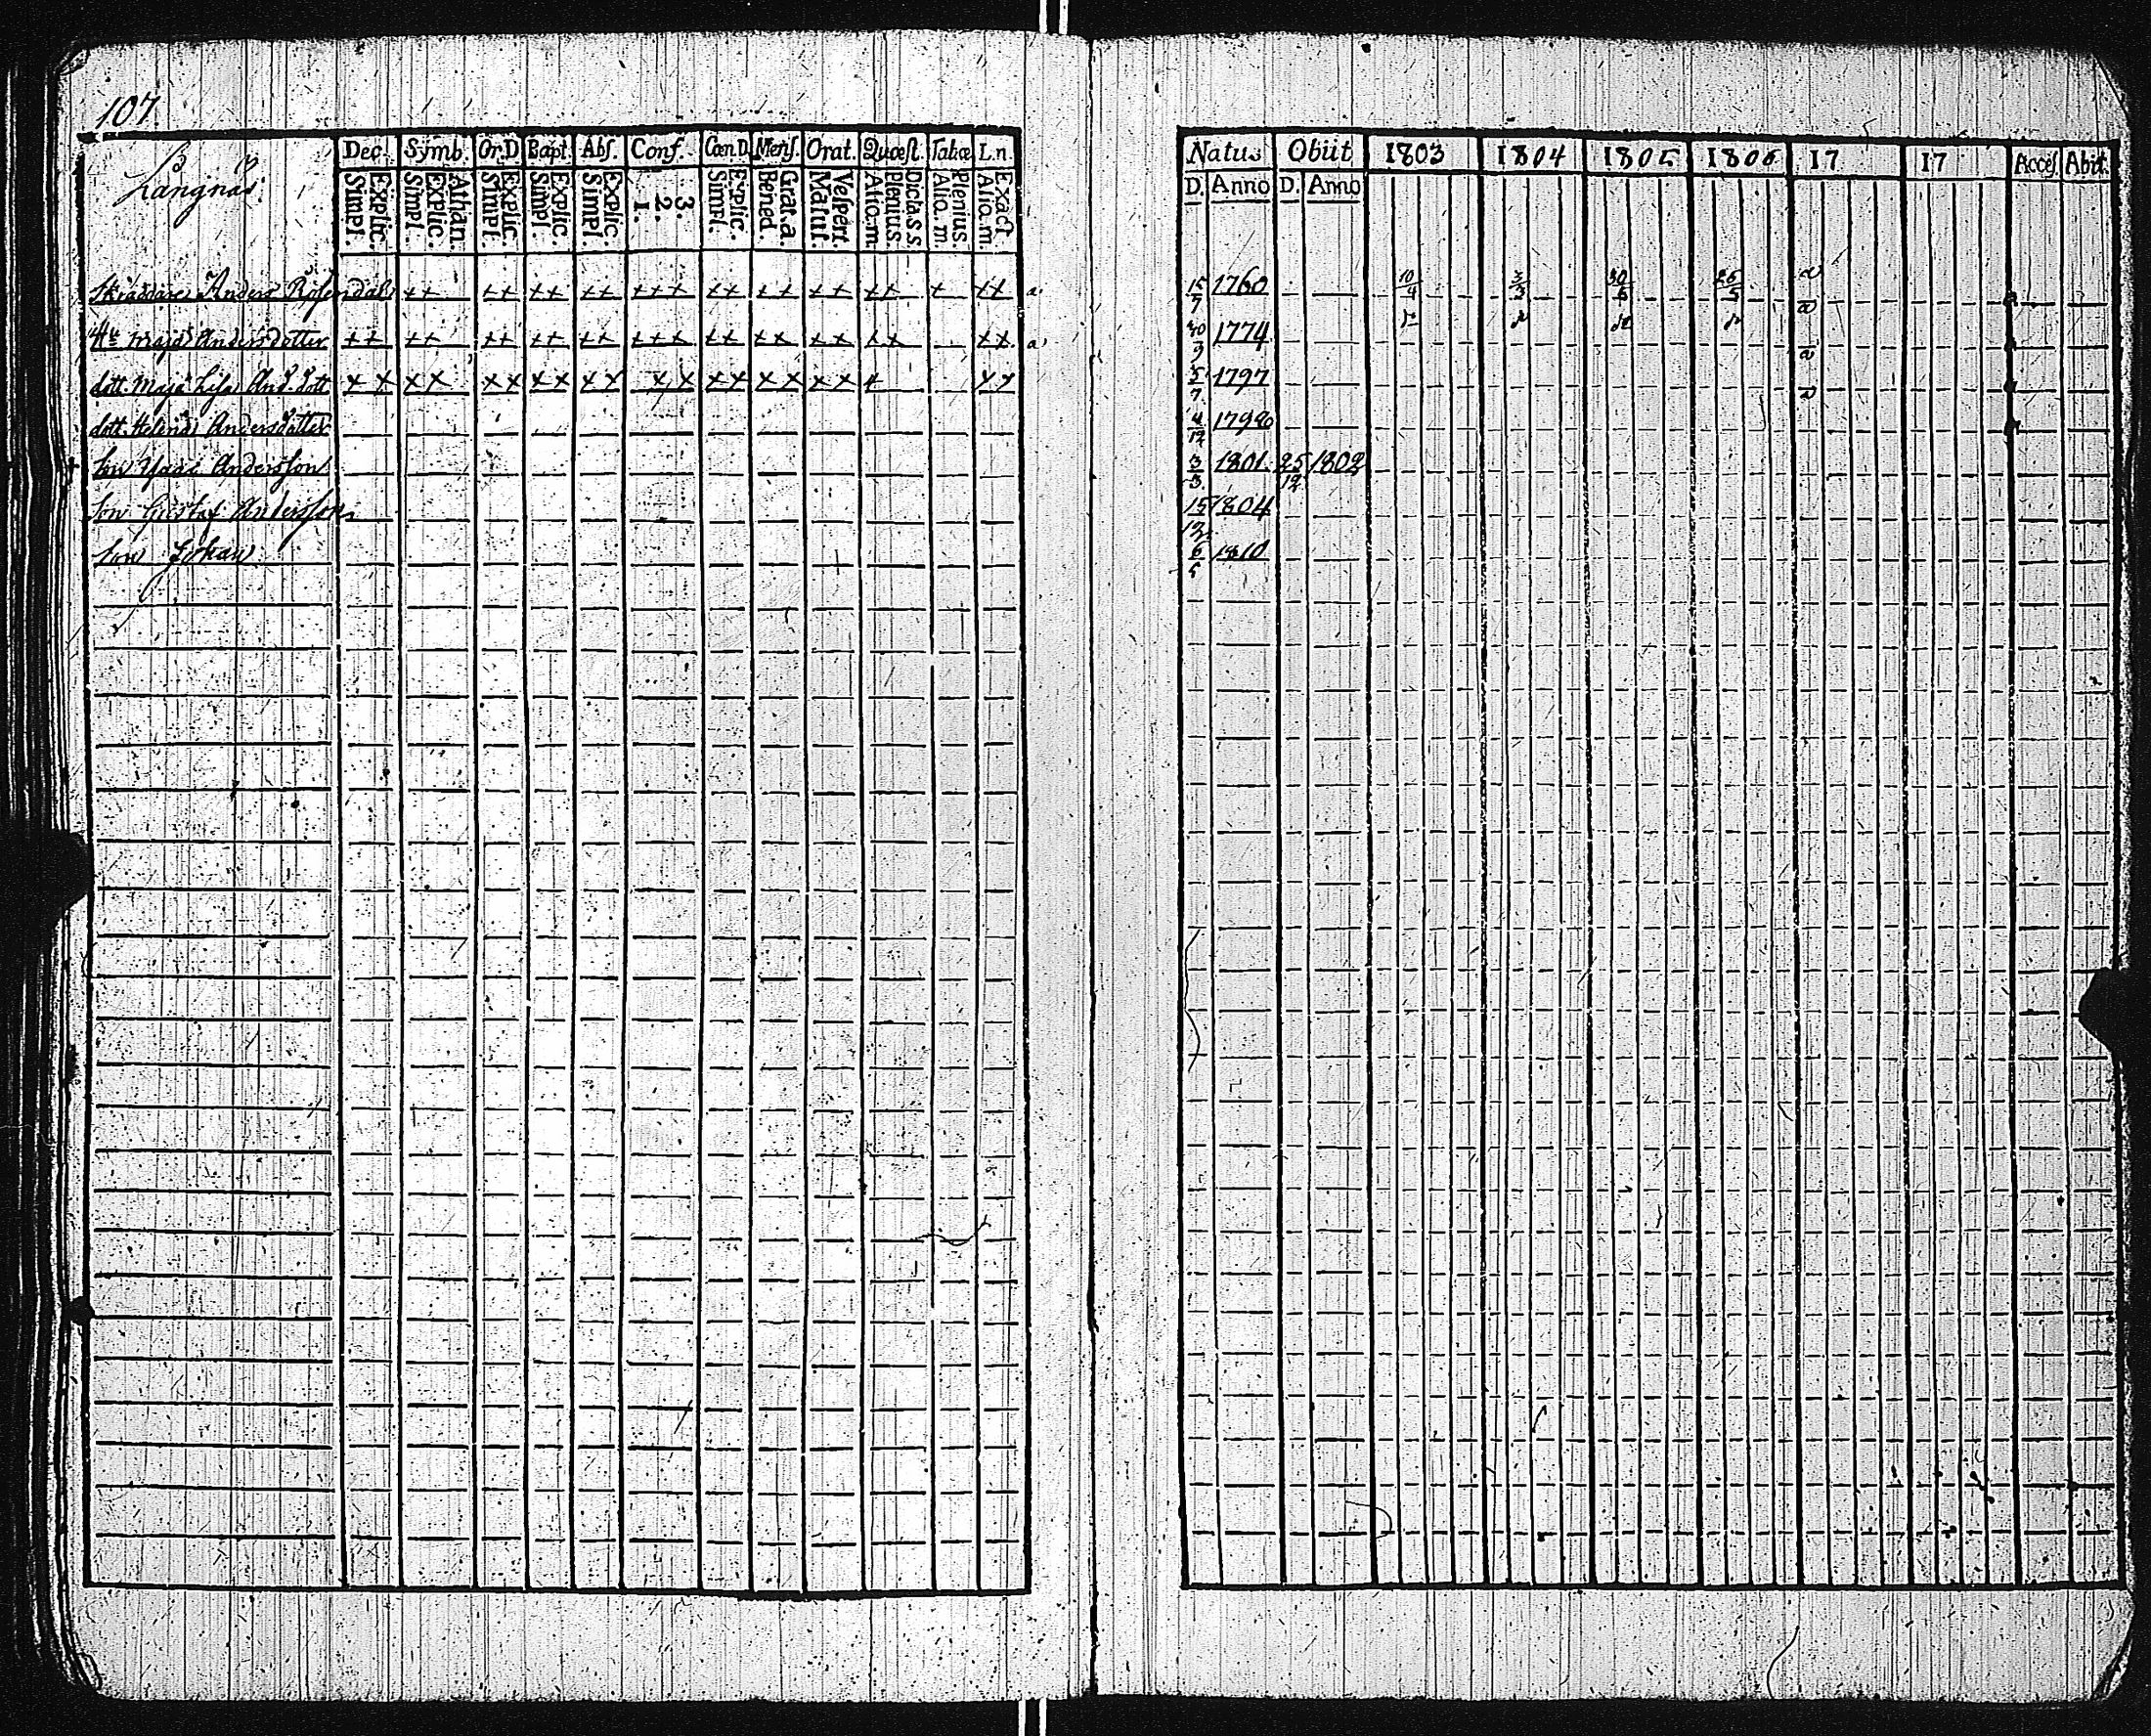 107
Långnäs.
Dec. Symb. Or.D Bapt. Abs. Conf. Cœn.D. Mens. Orat. Quæst. Tabœ L.n.
Explic. Simpl. Athan. Explic. Simpl. Explic. Simpl. Explic. Simpl. Explic. Simpl. 3. 2. 1. Explic. Simpl. Grat.a. Bened. Vespert. Matut. Dicta.s.s Plenius. Alio.m. Plenius. Alio.m. Exact. Alio.m.
Natus Obiit 1803 1804 1805 1806 17 17 Acces. Abit.
D. Anno D. Anno
Skräddare Anders Rosendal ++ ++ ++ ++ +++ ++ ++ ++ ++ + ++ a 15/7 1760 10/4 30/6 25/5 a
H:u Maja Andersdotter ++ ++ ++ ++ ++ +++ ++ ++ ++ ++ ++ a 30/9 1774 a
dott. Maja Lisa And. dott ++ ++ ++ ++ ++ ++ ++ ++ ++ + ++ 5/7 1797 a
dott. Helena Andersdotter 4/12 1798 a
Son Andersson 3/3 1801 25/12 1802
Son Gustaf Andersson 15/12 1804
Son Johan 6/5 1810